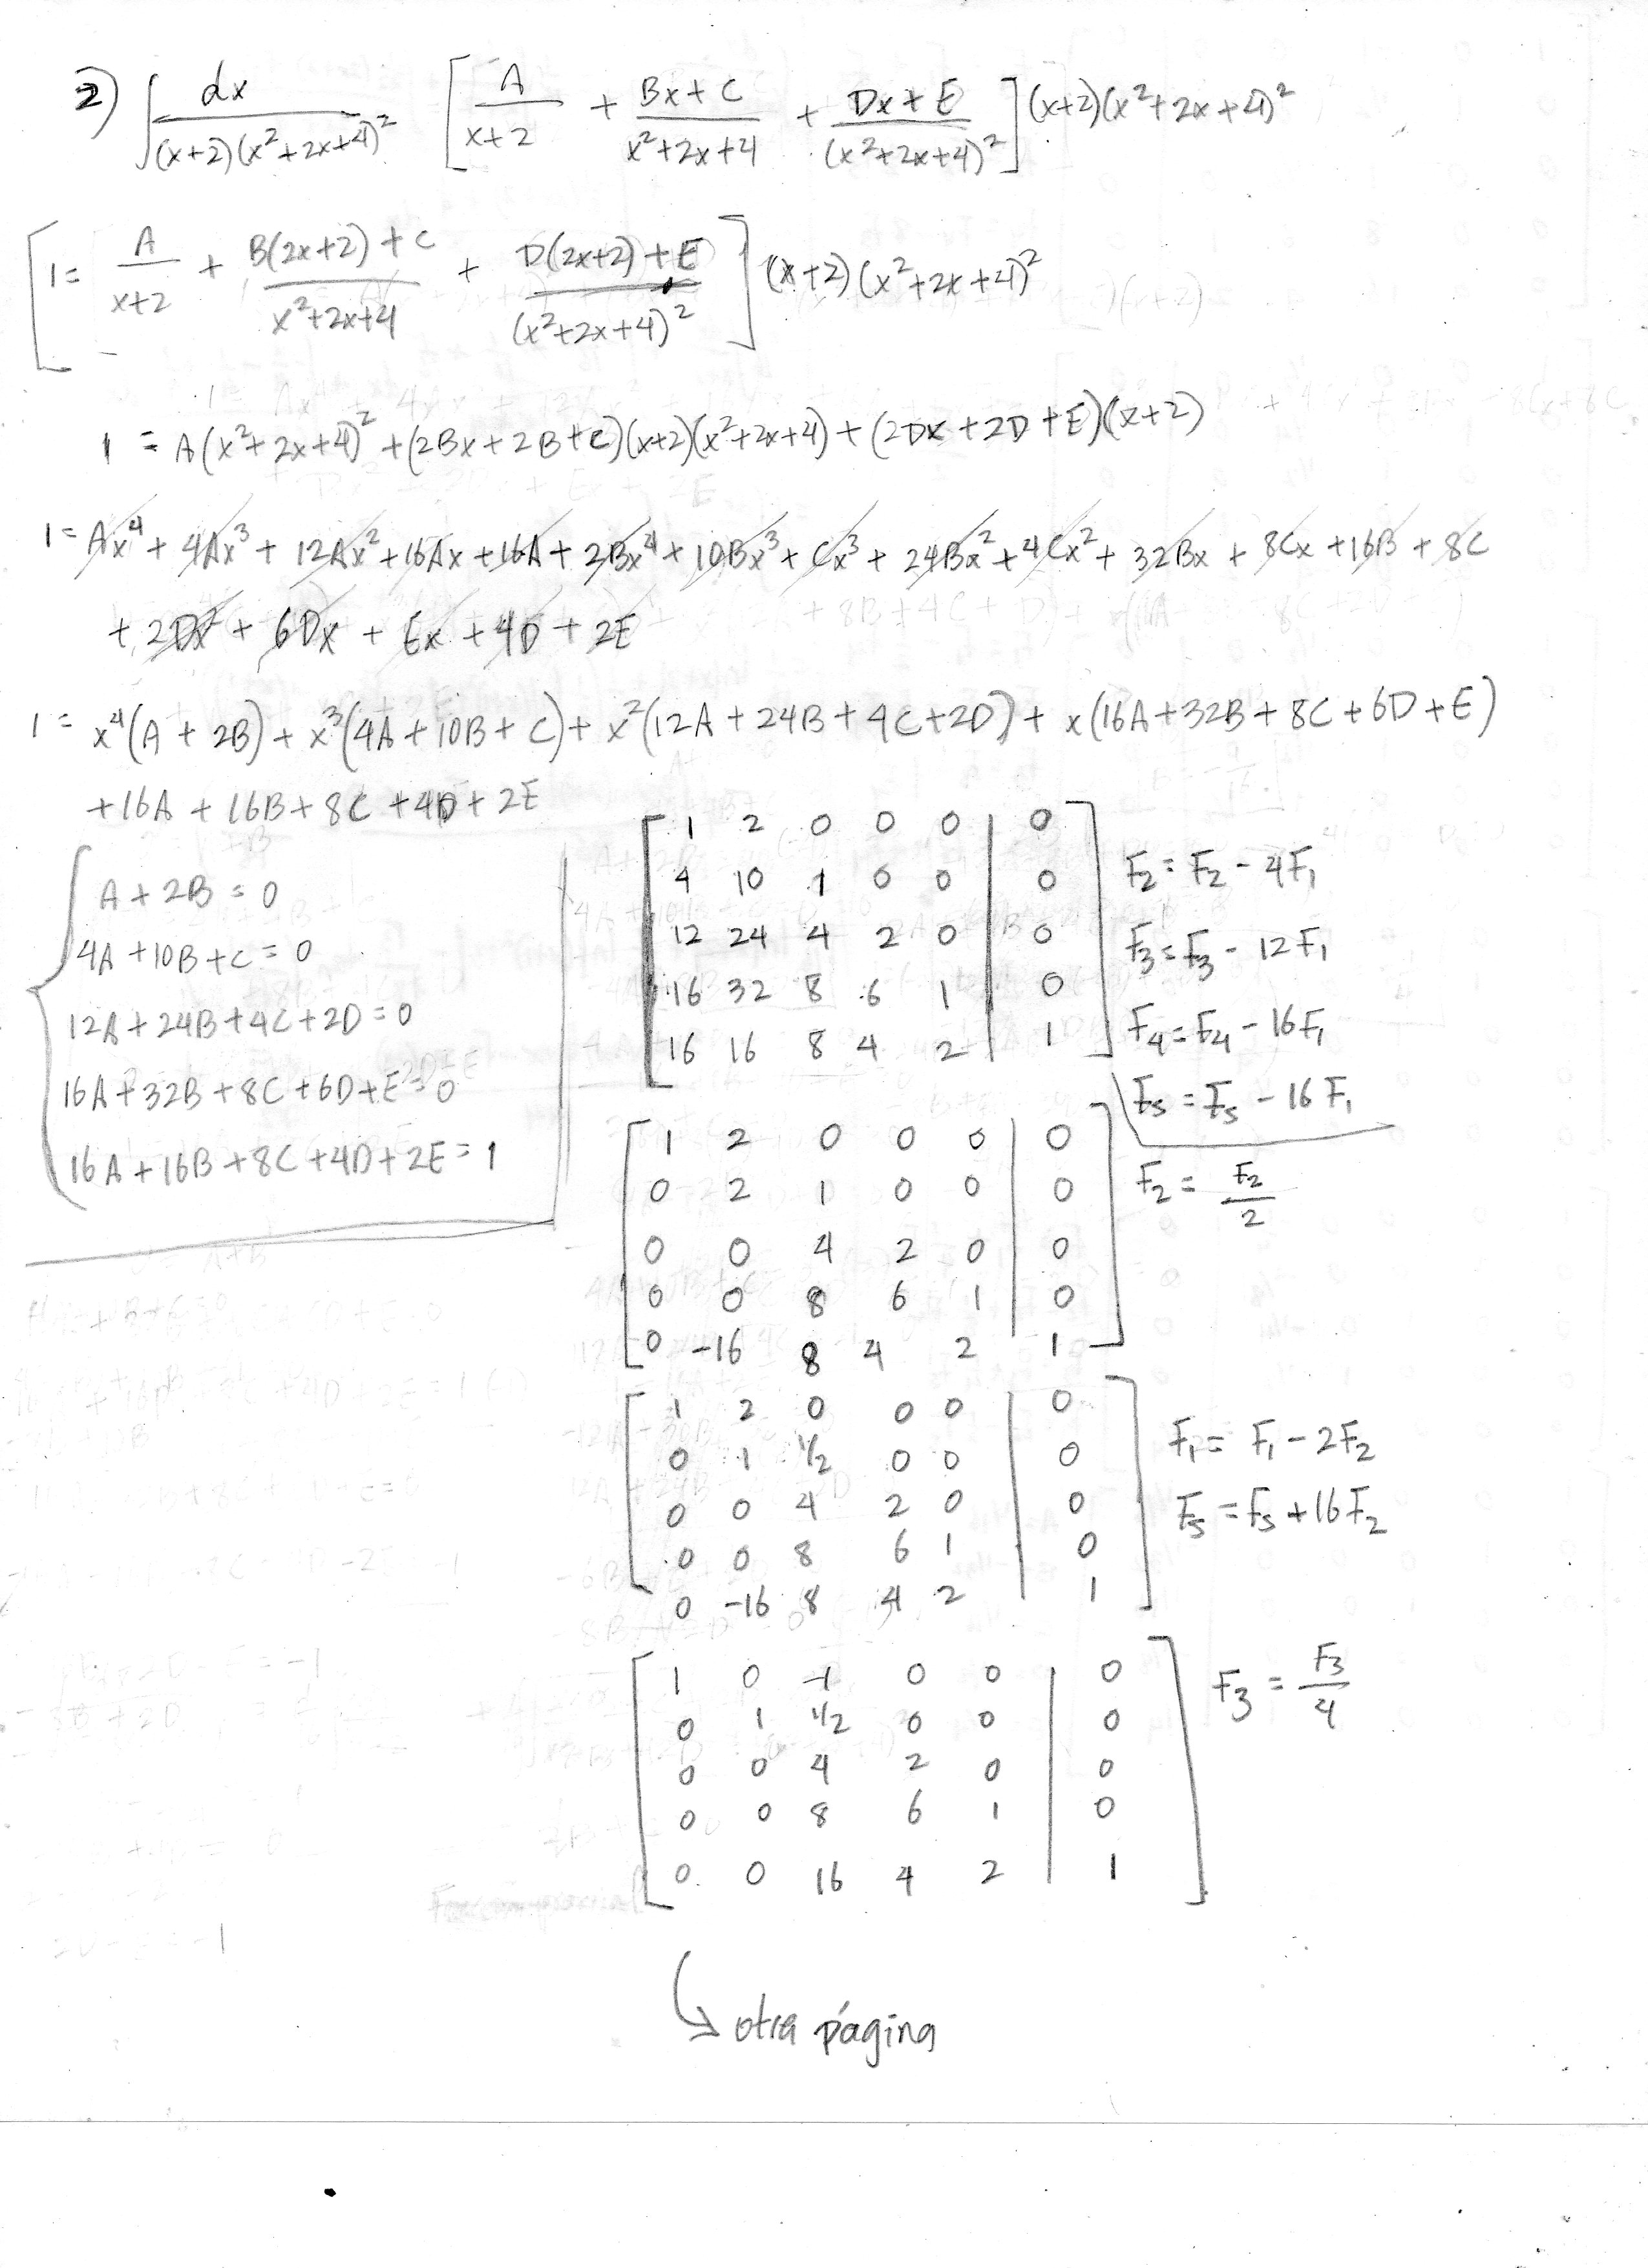 2) ∫ dx / (x+2)(x²+2x+4)² [ A / x+2 + Bx+C / x²+2x+4 + Dx+E / (x²+2x+4)² ] (x+2)(x²+2x+4)²
[ 1 = A / x+2 + B(2x+2)+C / x²+2x+4 + D(2x+2)+E / (x²+2x+4)² ] (x+2)(x²+2x+4)²
1 = A(x²+2x+4)² + (2Bx+2B+C)(x+2)(x²+2x+4) + (2Dx+2D+E)(x+2)
1 = Ax⁴ + 4Ax³ + 12Ax² + 16Ax + 16A + 2Bx⁴ + 10Bx³ + Cx³ + 24Bx² + 4Cx² + 32Bx + 8Cx + 16B + 8C
+ 2Dx² + 6Dx + Ex + 4D + 2E
1 = x⁴(A + 2B) + x³(4A + 10B + C) + x²(12A + 24B + 4C + 2D) + x(16A + 32B + 8C + 6D + E)
+ 16A + 16B + 8C + 4D + 2E
A + 2B = 0
4A + 10B + C = 0
12A + 24B + 4C + 2D = 0
16A + 32B + 8C + 6D + E = 0
16A + 16B + 8C + 4D + 2E = 1
1 2 0 0 0 | 0
4 10 1 0 0 | 0 F₂ = F₂ - 4F₁
12 24 4 2 0 | 0 F₃ = F₃ - 12F₁
16 32 8 6 1 | 0 F₄ = F₄ - 16F₁
16 16 8 4 2 | 1 F₅ = F₅ - 16F₁
1 2 0 0 0 | 0
0 2 1 0 0 | 0 F₂ = F₂ / 2
0 0 4 2 0 | 0
0 0 8 6 1 | 0
0 -16 8 4 2 | 1
1 2 0 0 0 | 0
0 1 1/2 0 0 | 0 F₁ = F₁ - 2F₂
0 0 4 2 0 | 0 F₅ = F₅ + 16F₂
0 0 8 6 1 | 0
0 -16 8 4 2 | 1
1 0 -1 0 0 | 0 F₃ = F₃ / 4
0 1 1/2 0 0 | 0
0 0 4 2 0 | 0
0 0 8 6 1 | 0
0 0 16 4 2 | 1
↳ otra página